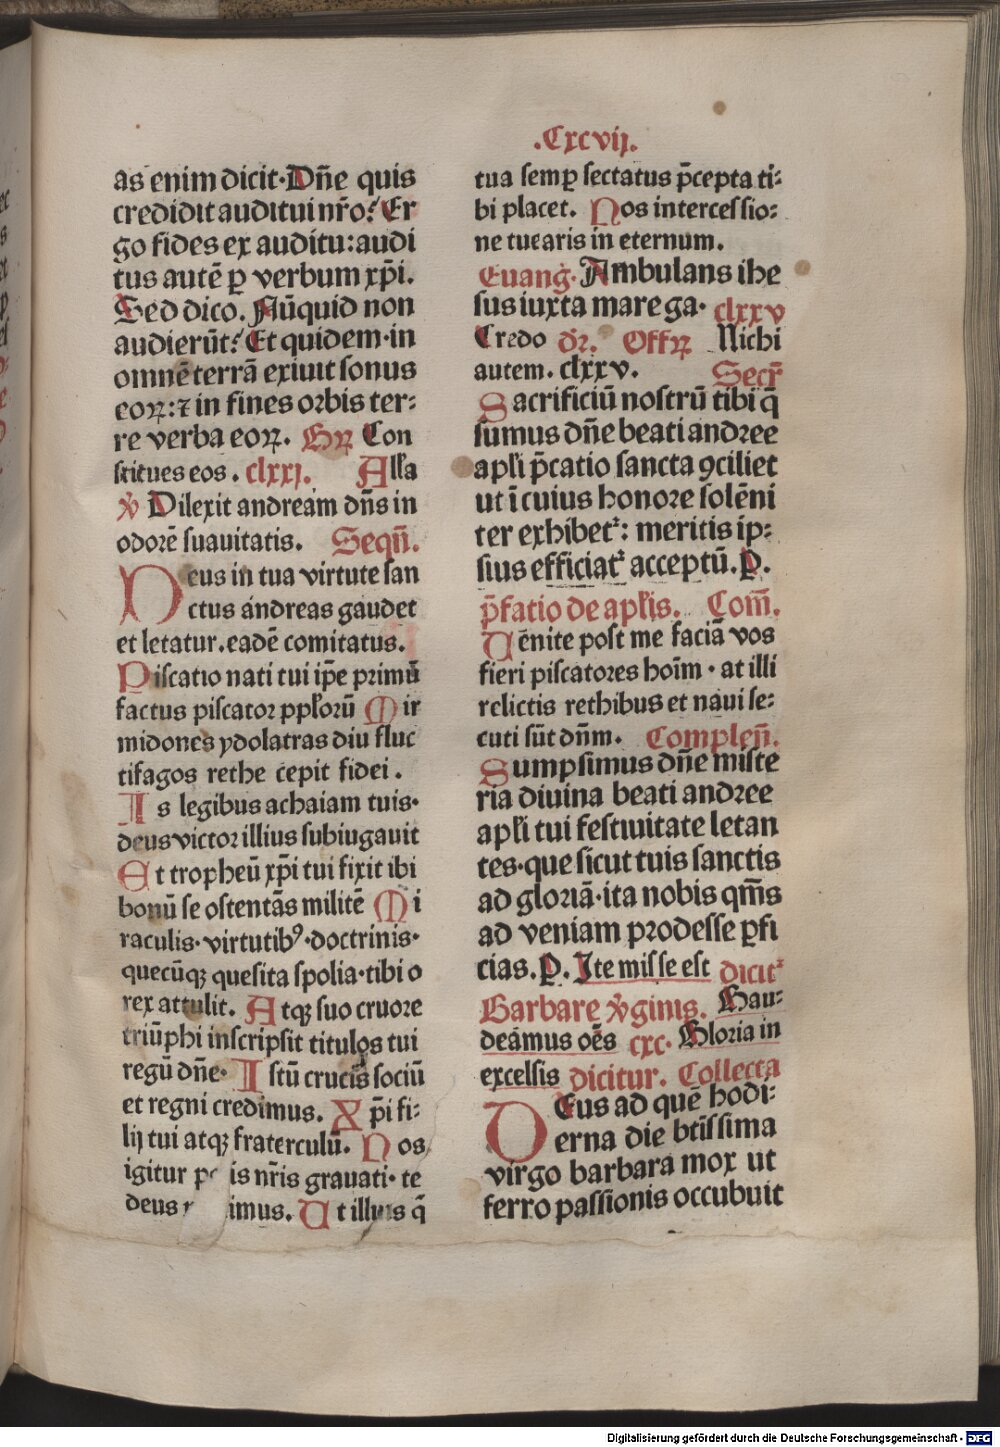 .Cxcvij.
as enim dicit·Dn̄e quis
credidit auditui nr̄o? Er
go fides ex auditu:audi
tus autē ꝑ verbum xp̄i.
Sed dico. Nūquid non
audierūt? Et quidem·in
omnē terrā exiuit sonus
eoꝝ:⁊ in fines orbis ter⸗
re verba eoꝝ. Gꝝ Con
stitues eos. clxxj. All'a
v̾ Dilexit andream dn̄s in
odorē suauitatis. Seqn̄.
Deus in tua virtute san
ctus andreas gaudet
et letatur.eadē comitatus.
Piscatio nati tui ip̄e primū
factus piscator ppl'orū Mir
midones ydolatras diu fluc
tifagos rethe cepit fidei.
Is legibus achaiam tuis·
deus victor illius subiugauit
Et tropheū xp̄i tui fixit ibi
bonū se ostentās militē Mi
raculis·virtutibꝰ·doctrinis·
quecūqꝫ quesita spolia·tibi o
rex attulit. Atqꝫ suo cruore
triūphi inscripsit titulos tui
regū dn̄e· Istū crucis sociū
et regni credimus. Xp̄i fi⸗
lij tui atqꝫ fraterculū. Nos
igitur is nr̄is grauati·te
deus imus. Ut illius q̄
tua semꝑ sectatus p̄cepta ti⸗
bi placet. Nos intercessio⸗
ne tuearis in eternum.
Euanḡ· Ambulans ihe
sus iuxta mare ga· clxxv
Credo dr̄. Offꝝ Nichi
autem. clxxv. Secr̄
Sacrificiū nostrū tibi q̄
sumus dn̄e beati andree
apl'i p̄catio sancta ꝯciliet
ut ī cuius honore solēni
ter exhibetᷣ: meritis ip⸗
sius efficiatᷣ acceptū.P.
p̄fatio de apl'is. Com̄.
Uēnite post me faciā vos
fieri piscatores hoīm·at illi
relictis rethibus et naui se⸗
cuti sūt dn̄m. Complen̄.
Sumpsimus dn̄e miste
ria diuina beati andree
apl'i tui festiuitate letan
tes·que sicut tuis sanctis
ad gloriā·ita nobis qm̄s
ad veniam prodesse ꝑfi
cias.P. Ite missе est dicitᷣ
Barbare v̾ginis. Gau⸗
deamus oēs cxc· Gloria in
excelsis dicitur. Collecta
Deus ad quē hodi⸗
erna die btīssima
virgo barbara mox ut
ferro passionis occubuit
Digitalisierung gefördert durch die Deutsche Forschungsgemeinschaft - DFG